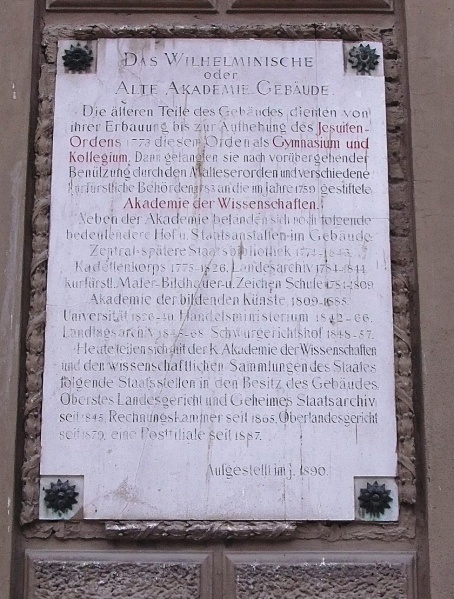 Das Wilhelminische
oder
Alte Akademie-Gebäude.
Die älteren Teile des Gebäudes dienten von
ihrer Erbauung bis zur Aufhebung des Jesuiten-
Ordens 1773 diesem Orden als Gymnasium und
Kollegium. Dann gelangten sie nach vorübergehender
Benützung durch den Malteserorden und verschiedene
kurfürstliche Behörden an die im Jahre 1759 gestiftete
Akademie der Wissenschaften.
Neben der Akademie befanden sich noch folgende
bedeutendere Hof u. Staatsanstalten im Gebäude
Zentral-spätere Staatsbibliothek 1774-1843.
Kadettenkorps 1775-1826. Landesarchiv 1784-1844
kurfürstl. Maler-Bildhauer-u. Zeichen Schule 1784-1809
Akademie der bildenden Künste 1809-1885.
Universität 1826-40 Handelsministerium 1842-66.
Landtagsarchiv 1845-68 Schwurgerichtshof 1848-57.
Heute teilen sich mit der K. Akademie der Wissenschaften
und den wissenschaftlichen Sammlungen des Staates
folgende Staatsstellen in den Besitz des Gebäudes.
Oberstes Landesgericht und Geheimes Staatsarchiv
seit 1845, Rechnungskammer seit 1865, Oberlandesgericht
seit 1879, eine Postfiliale seit 1887.
Aufgestellt im J. 1890.